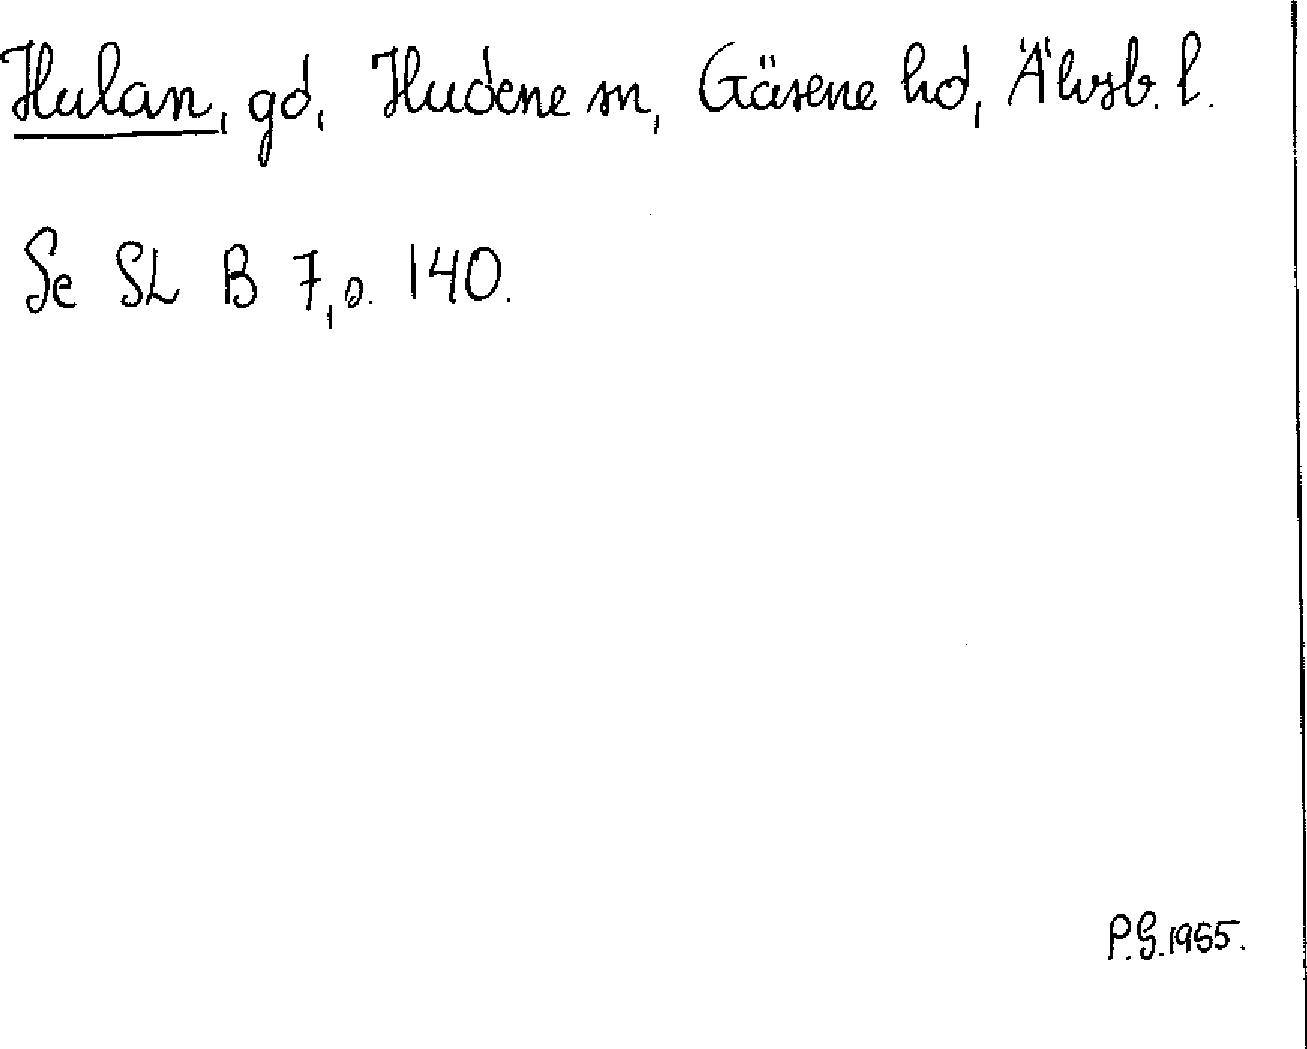 Hulan, gd, Hudene sn, Gäsene hd, Älvsb. l.
Se SL B 7, s. 140.
P.G. 1955.